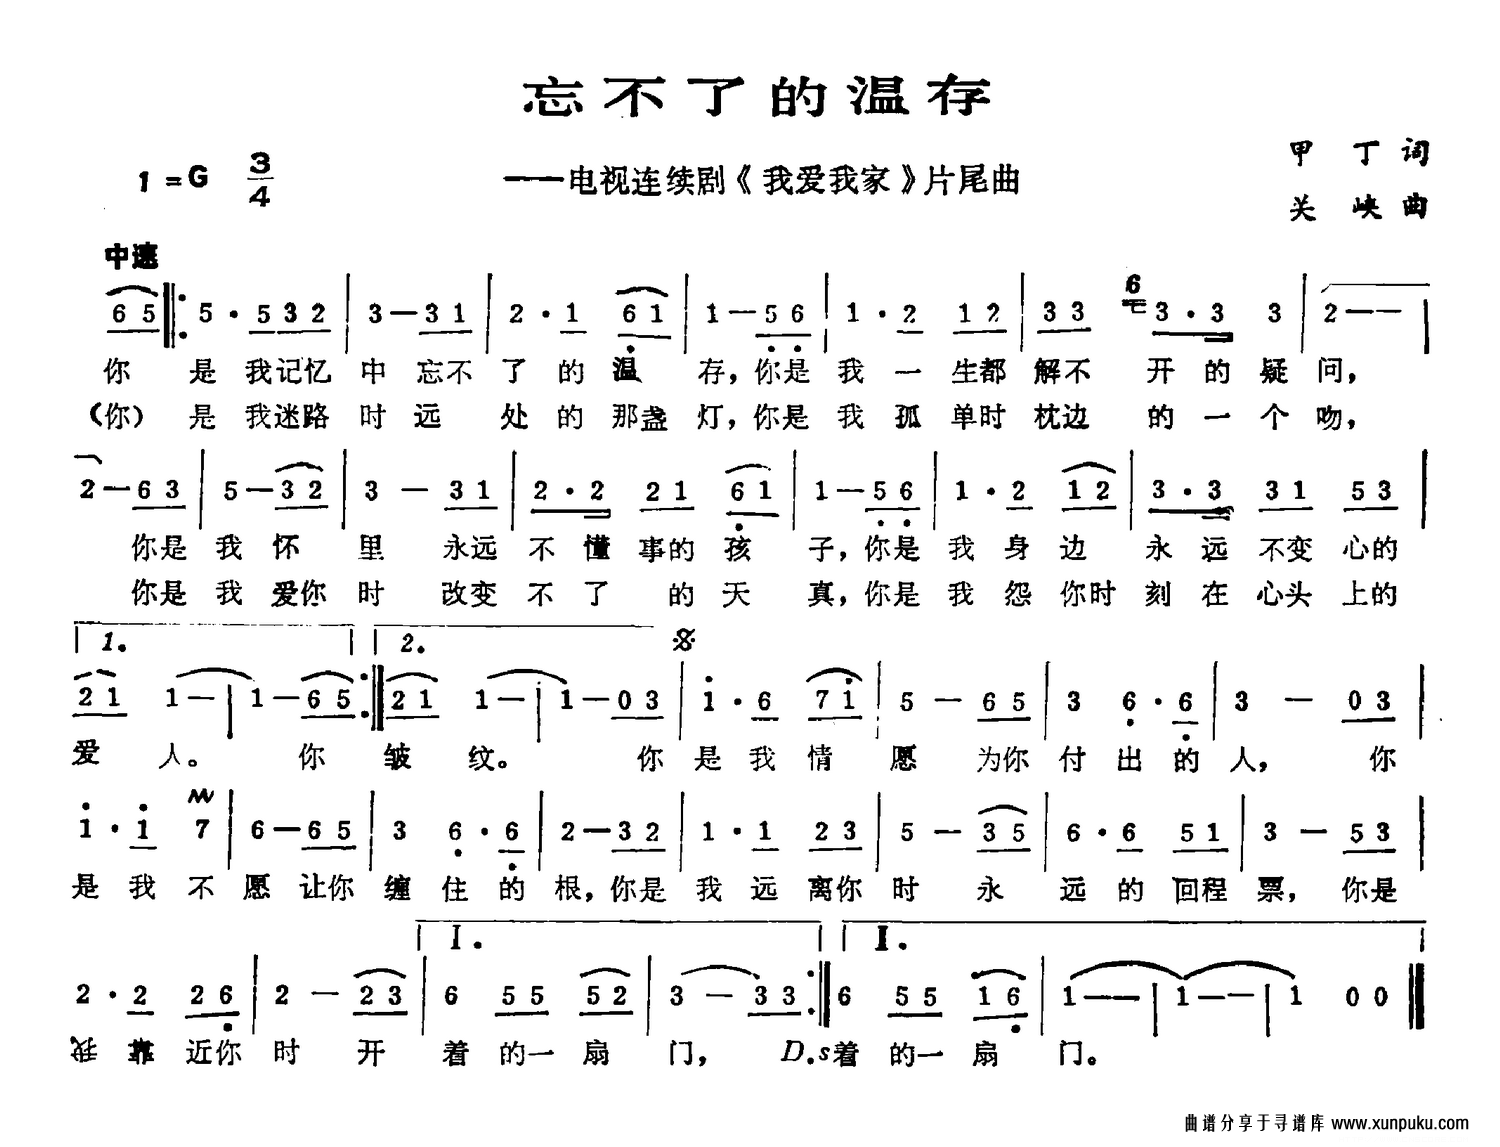 忘不了的温存
1=G 3/4
——电视连续剧《我爱我家》片尾曲
甲丁词
关峡曲
中速
6 5 5 · 5 3 2 3 — 3 1 2 · 1 6 1 1 — 5 6 1 · 2 1 2 3 3 6 3 · 3 3 2 — —
你 是 我记忆 中 忘不 了 的 温 存，你是 我 一 生都 解不 开 的 疑 问，
（你） 是 我迷路 时 远 处 的 那盏 灯，你是 我 孤 单时 枕边 的 一 个 吻，
2 — 6 3 5 — 3 2 3 — 3 1 2 · 2 2 1 6 1 1 — 5 6 1 · 2 1 2 3 · 3 3 1 5 3
你是 我 怀 里 永远 不 懂 事的 孩 子，你是 我 身 边 永 远 不变 心的
你是 我 爱你 时 改变 不 了 的 天 真，你是 我 怨 你时 刻 在 心头 上的
1. 2.
2 1 1 — 1 — 6 5 2 1 1 — 1 — 0 3 1 · 6 7 1 5 — 6 5 3 6 · 6 3 — 0 3
爱 人。 你 皱 纹。 你 是 我 情 愿 为你 付 出 的 人， 你
1 · 1 7 6 — 6 5 3 6 · 6 2 — 3 2 1 · 1 2 3 5 — 3 5 6 · 6 5 1 3 — 5 3
是 我 不 愿 让你 缠 住 的 根，你是 我 远 离你 时 永 远 的 回程 票， 你是
I. II.
2 · 2 2 6 2 — 2 3 6 5 5 5 2 3 — 3 3 6 5 5 1 6 1 — — 1 — — 1 0 0
我 靠 近你 时 开 着 的一 扇 门， D.s 着 的一 扇 门。
曲谱分享于寻谱库 www.xunpuku.com